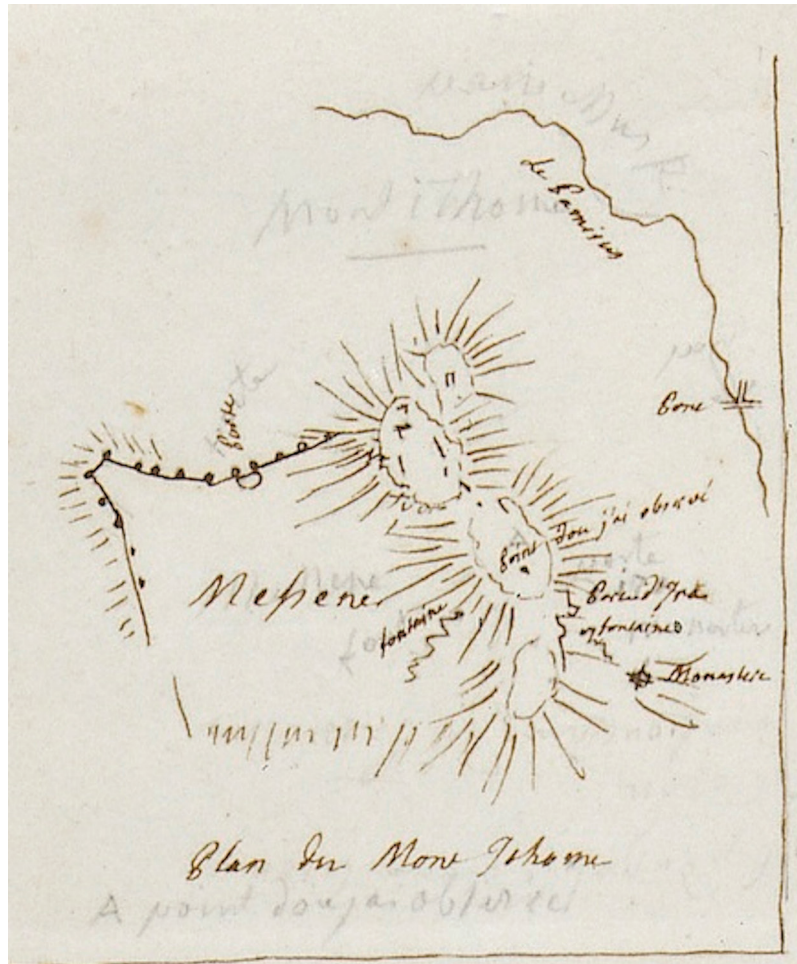 Mont ithome
le Pamisus
Porte
Pont
Point d'ou j'ai observé
Messene
fontaine
et fontaines
Monastere
Plan du Mont Ithome
A point d'ou j'ai observé